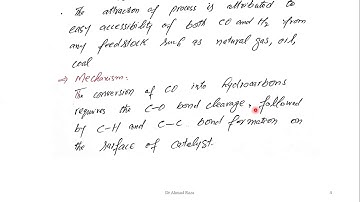 . The attraction of process is attributed to
easy accessibility of both CO and H2 from
any feedstock such as natural gas, oil,
coal
⇒ Mechanism:
The conversion of CO into hydrocarbons
requires the C-O bond cleavage, followed
by C-H and C-C bond formation on
the surface of catalyst.
Dr Ahmad Raza